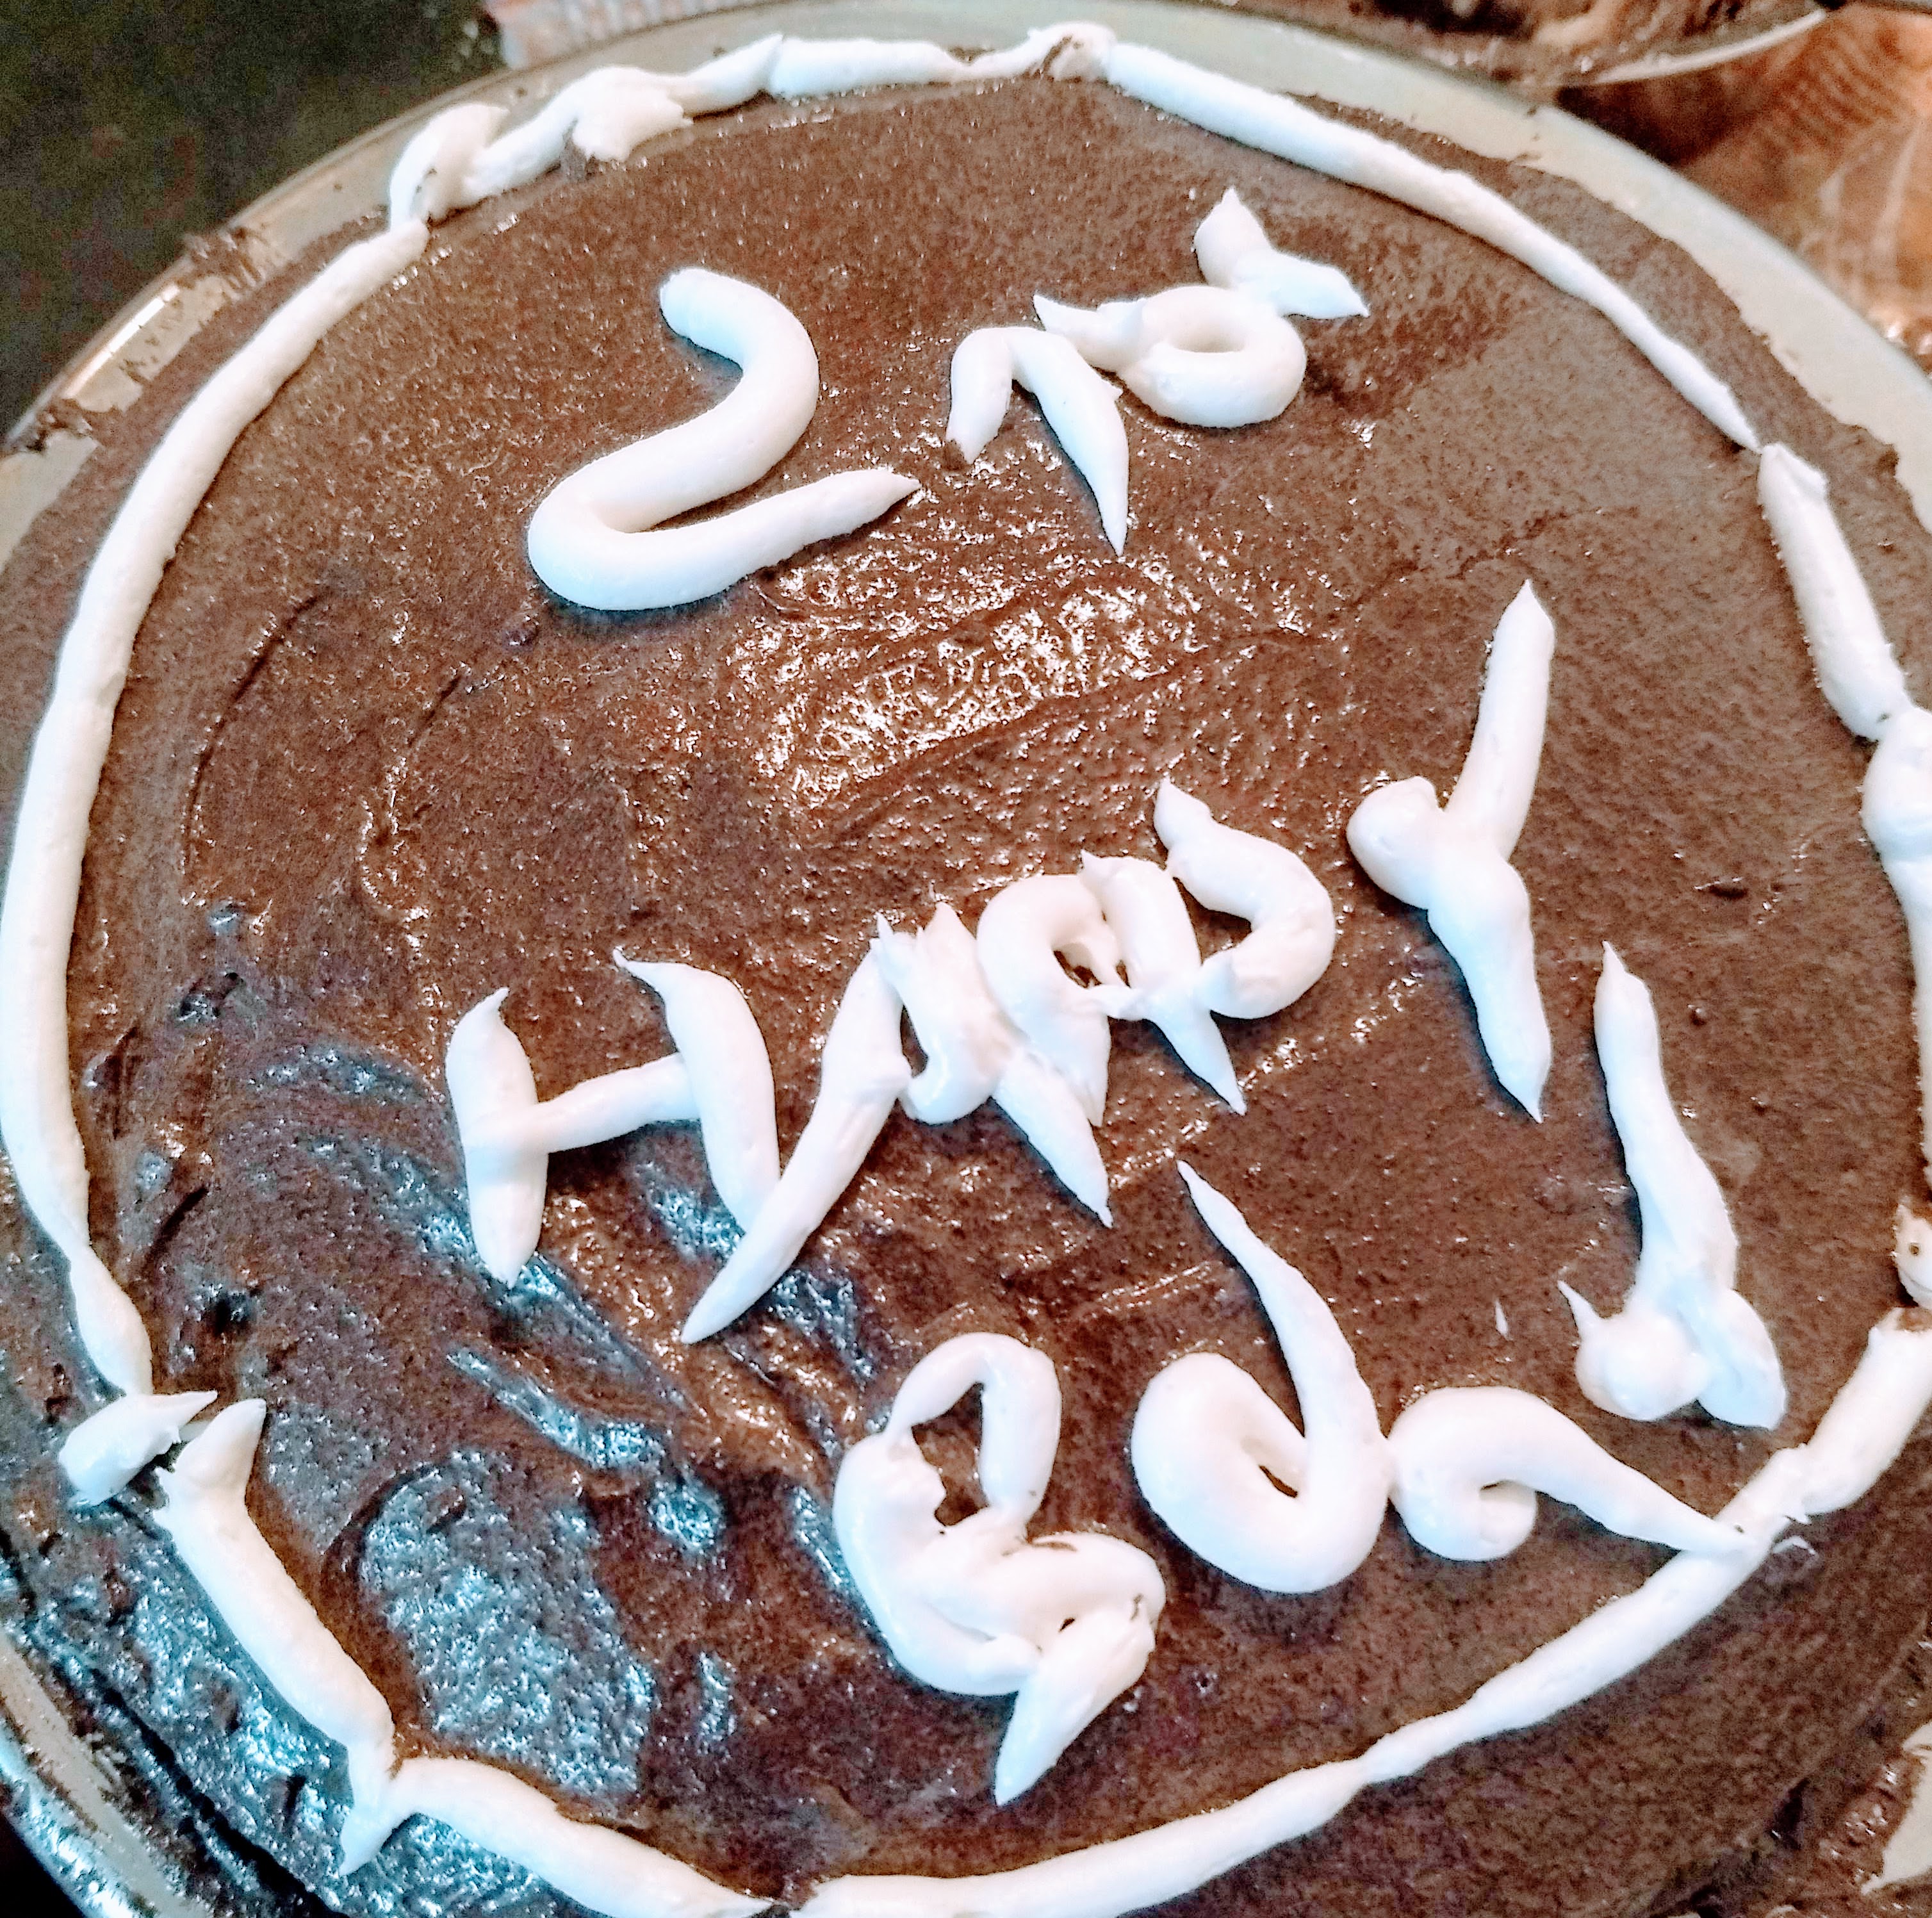 2nd
HAPPY
Bda!